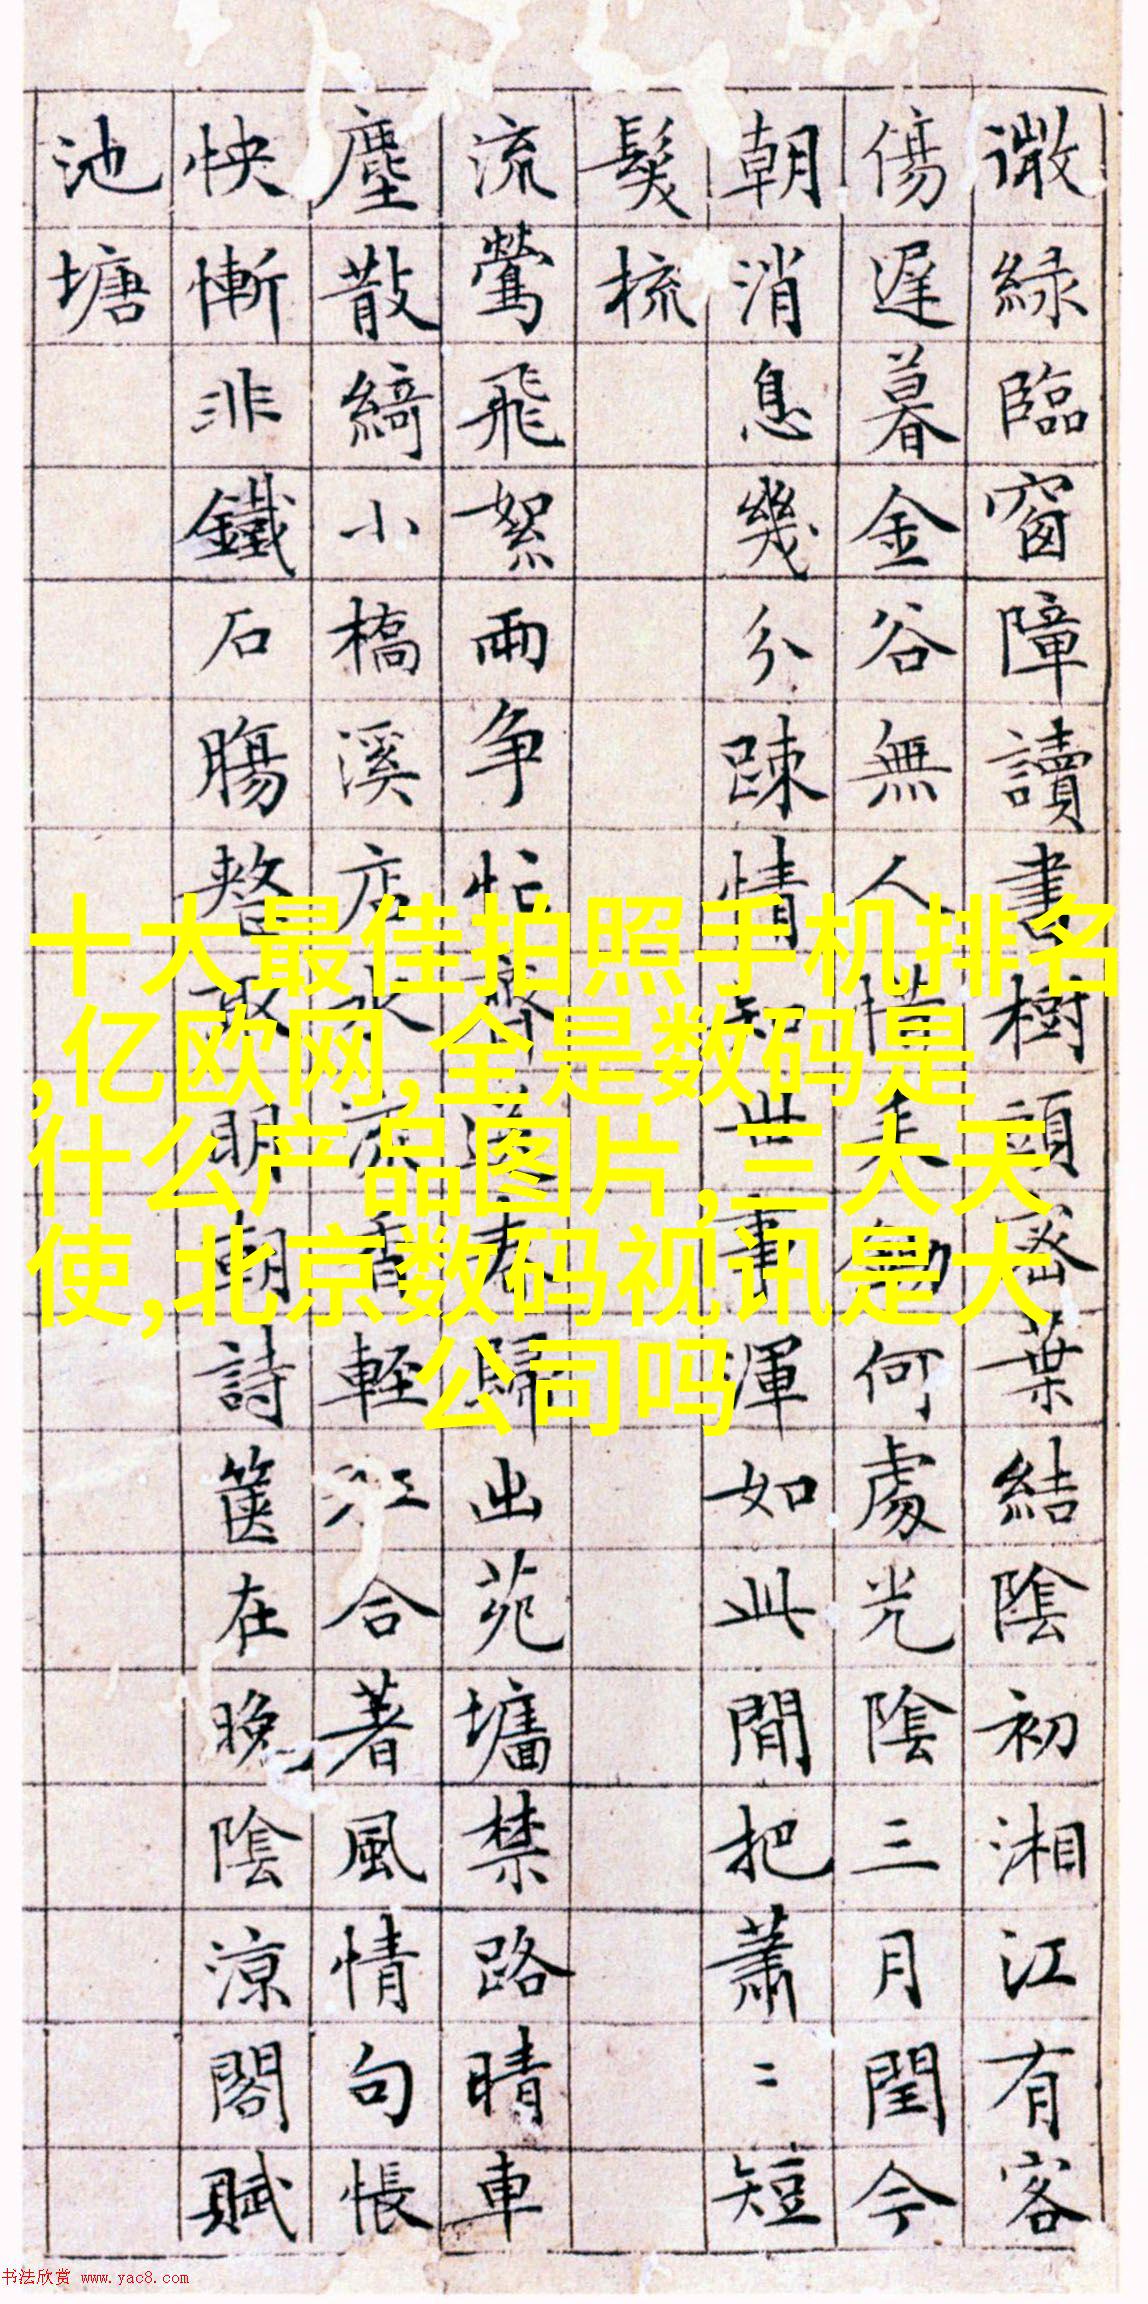 微綠臨窗障讀書樹頭密葉結陰初湘江有客
傷遲暮金谷無人惜何處光陰三月閏今
朝消息幾分踈情知世事渾如此間把蕭〻短
髮梳
流鶯飛絮兩争忙齊送春歸出苑墻禁路晴車
塵散綺小橋溪店水流香輕江合著風情句悵
怏慚非鐵石腸暫取明朝詩篋在晚陰涼閣賦
池塘
十大最佳拍照手机排名
,亿欧网,全是数码是
什么产品图片,三大天
使,北京数码视讯是大
公司吗
书法欣赏 www.yac8.com